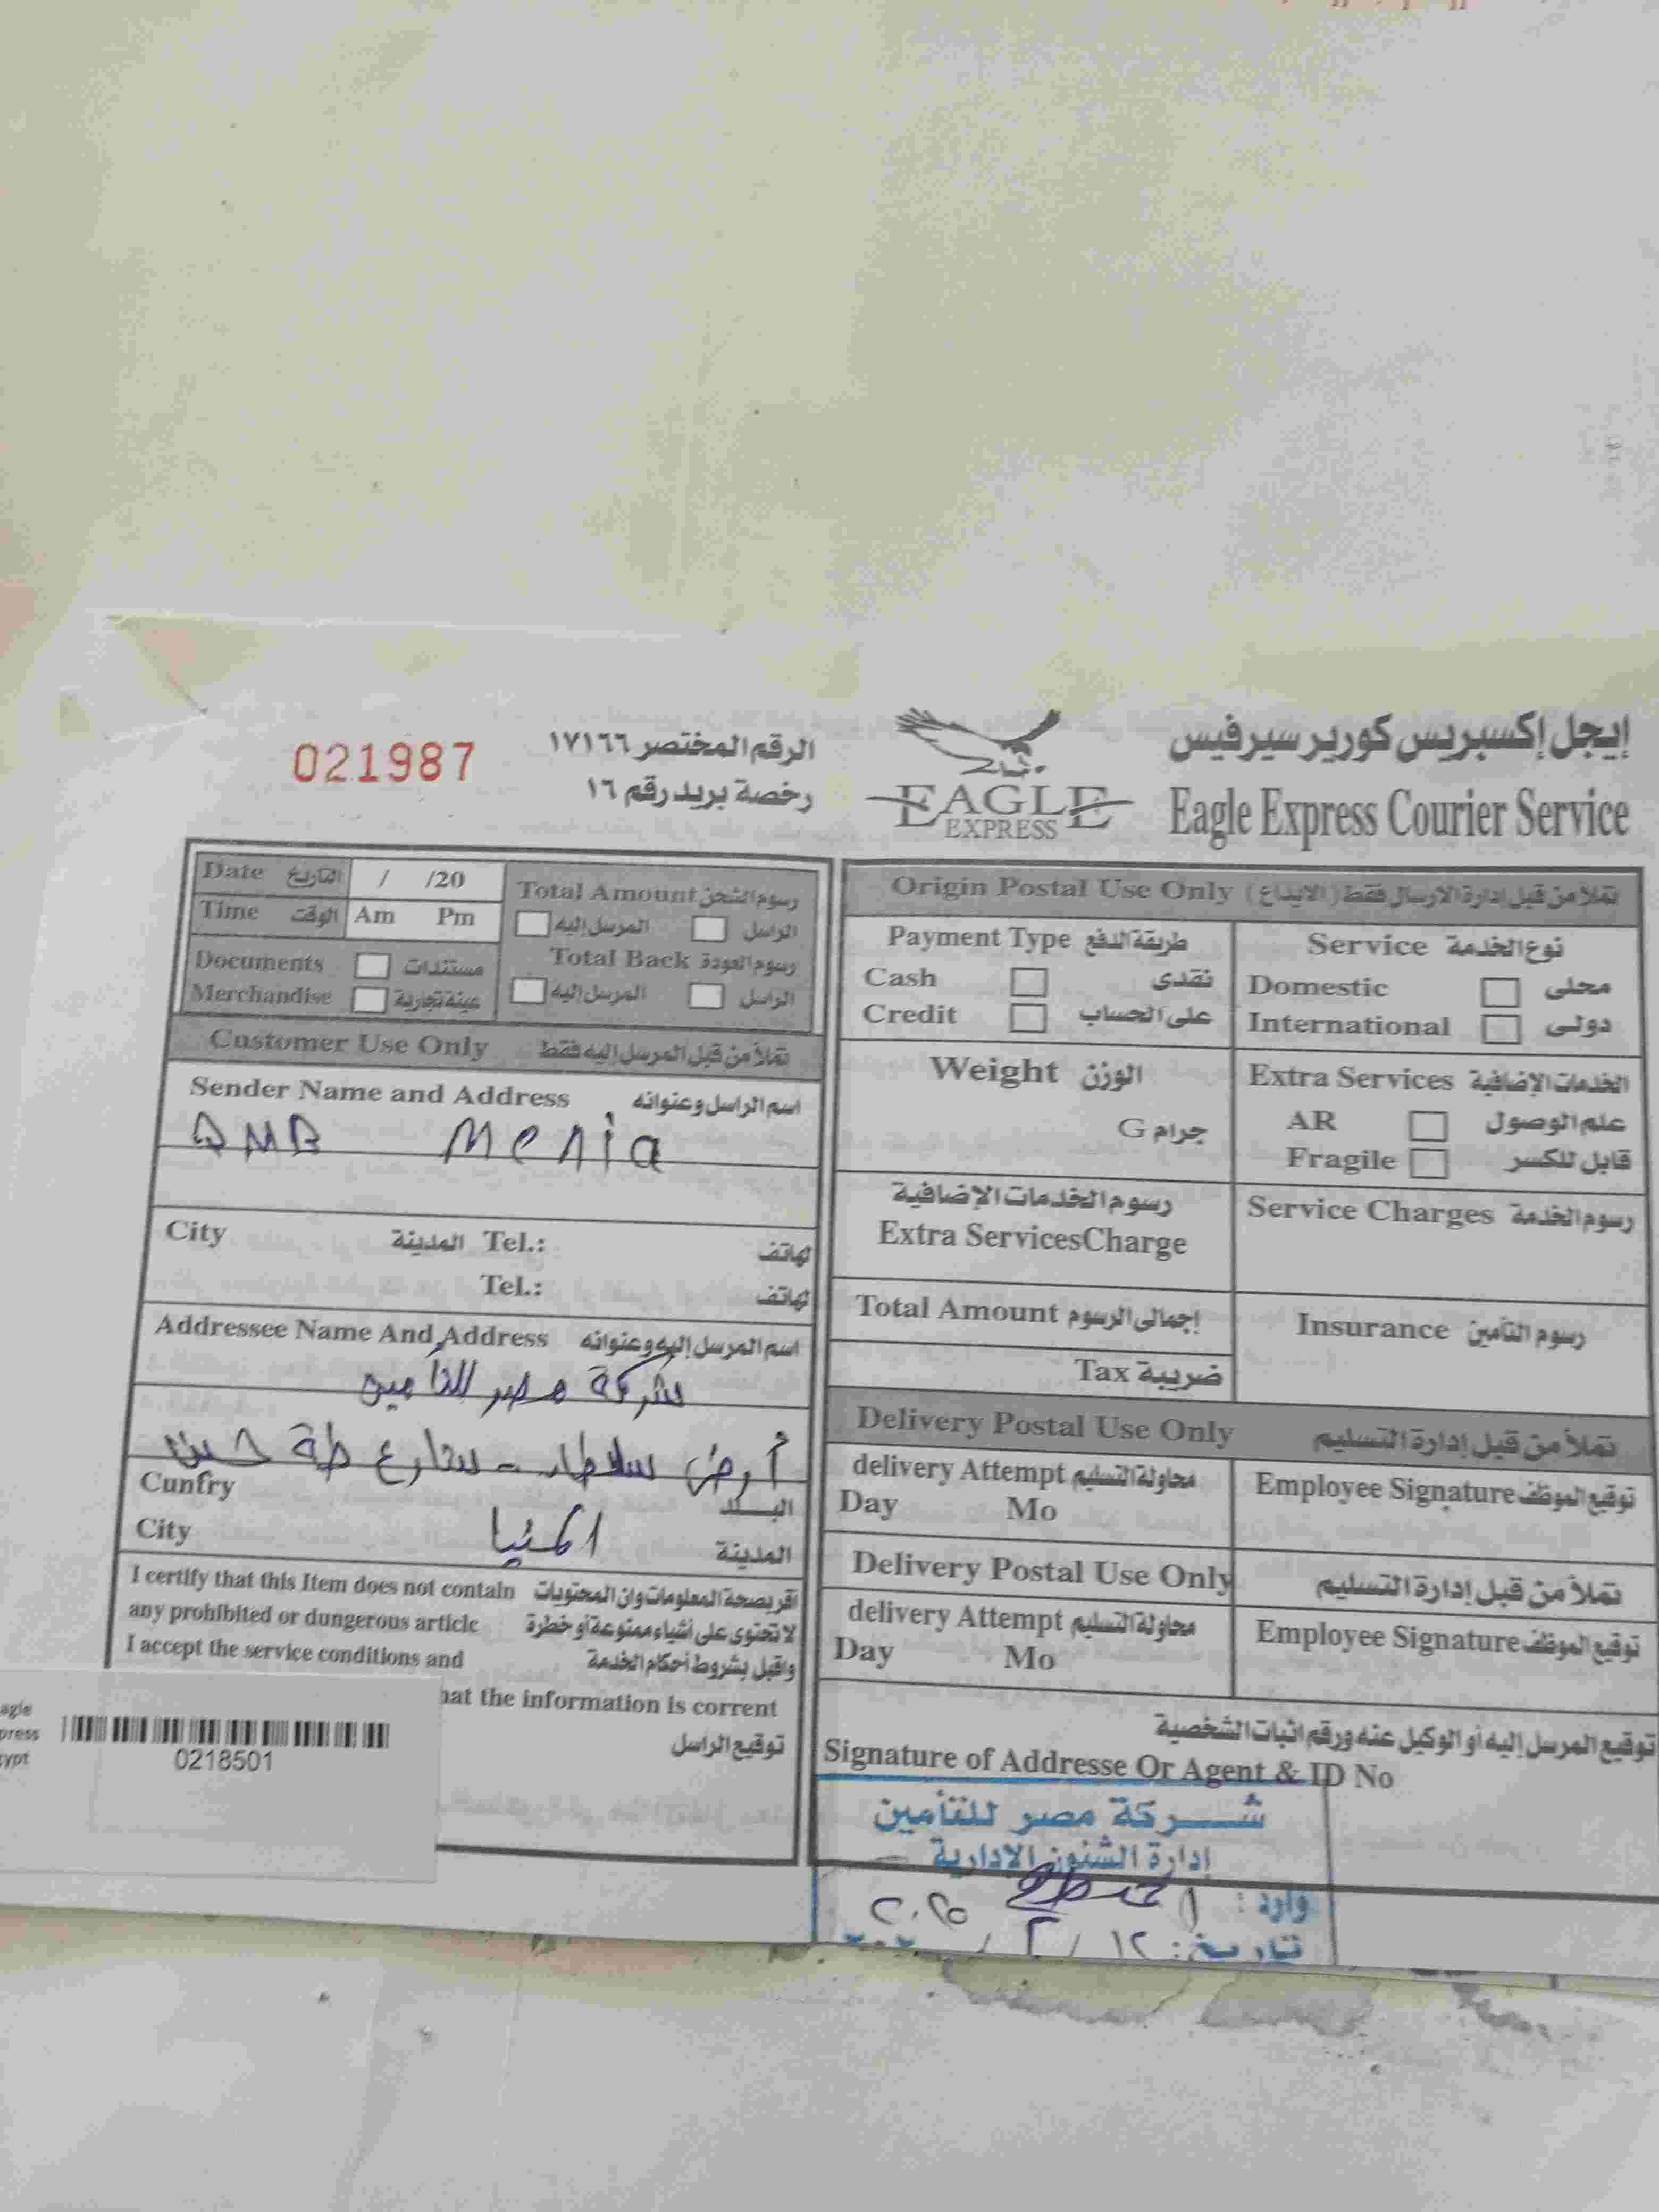 إيجل إكسبريس كورير سيرفيس
Eagle Express Courier Service
EAGLE
EXPRESS
الرقم المختصر ١٧١٦٦
رخصة بريد رقم ١٦
021987
Date التاريخ / /20
Time الوقت Am Pm
Documents مستندات
Merchandise عينة تجارية
Total Amount رسوم الشحن
المرسل إليه الراسل
Total Back رسوم العودة
المرسل إليه الراسل
Customer Use Only تملأ من قبل المرسل إليه فقط
Sender Name and Address اسم الراسل وعنوانه
QMB Menia
City المدينة Tel.: تهاتف
Tel.: تهاتف
Addressee Name And Address اسم المرسل إليه وعنوانه
شركة مصر للتأمين
أرض سلطان - شارع طة حسين
Cunfry البــلد
City المدينة المنيا
I certify that this Item does not contain أقر بصحة المعلومات وان المحتويات
any prohibited or dungerous article لا تحتوى على أشياء ممنوعة أو خطرة
I accept the service conditions and واقبل بشروط أحكام الخدمة
hat the information is corrent
توقيع الراسل
agle
press
ypt
0218501
Origin Postal Use Only تملأ من قبل إدارة الارسال فقط (الايداع)
Payment Type طريقة الدفع
Cash نقدى
Credit على الحساب
Service نوع الخدمة
Domestic محلى
International دولى
Weight الوزن
G جرام
Extra Services الخدمات الإضافية
AR علم الوصول
Fragile قابل للكسر
رسوم الخدمات الإضافية
Extra ServicesCharge
Service Charges رسوم الخدمة
Total Amount إجمالى الرسوم
Insurance رسوم التأمين
Tax ضريبة
Delivery Postal Use Only تملأ من قبل إدارة التسليم
delivery Attempt محاولة التسليم
Day Mo
Employee Signature توقيع الموظف
Delivery Postal Use Only تملأ من قبل إدارة التسليم
delivery Attempt محاولة التسليم
Day Mo
Employee Signature توقيع الموظف
توقيع المرسل إليه أو الوكيل عنه ورقم اثبات الشخصية
Signature of Addresse Or Agent & ID No
شــركة مصر للتأمين
إدارة الشئون الادارية
وارد :
تاريخ: ١٢ / ٢ /